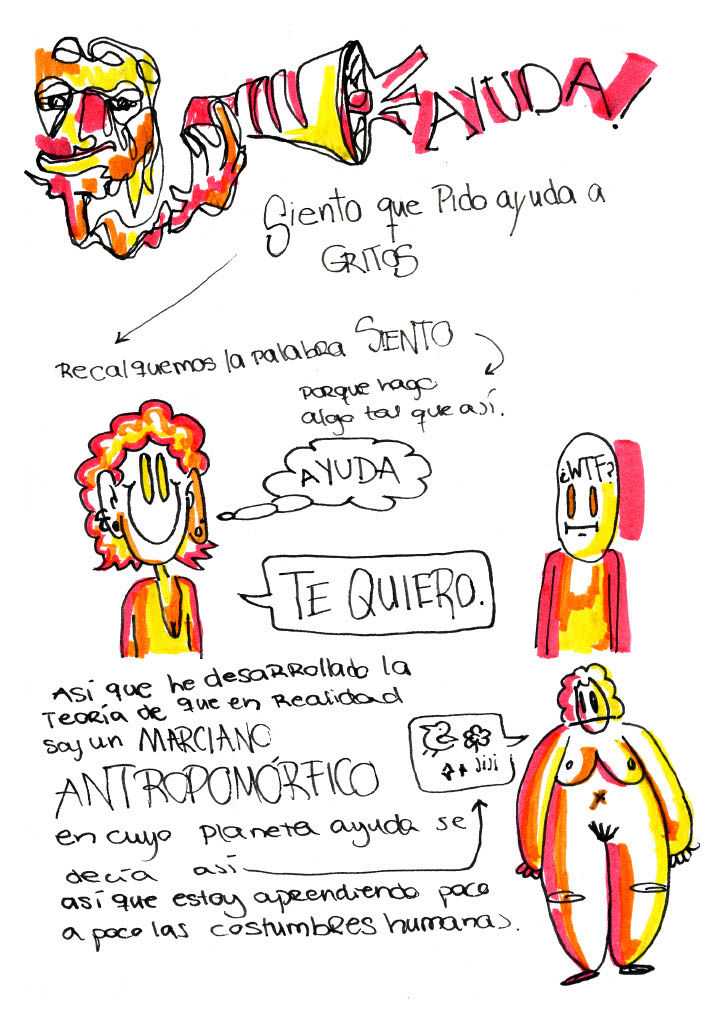 AYUDA!
Siento que Pido ayuda a
GRITOS
Recalquemos la palabra SIENTO
porque hago
algo tal que así.
AYUDA
¿WTF?
TE QUIERO.
Así que he desarrollado la
teoría de que en realidad
soy un MARCIANO
ANTROPOMÓRFICO
en cuyo planeta ayuda se
decía así
jiji
así que estoy aprendiendo poco
a poco las costumbres humanas.